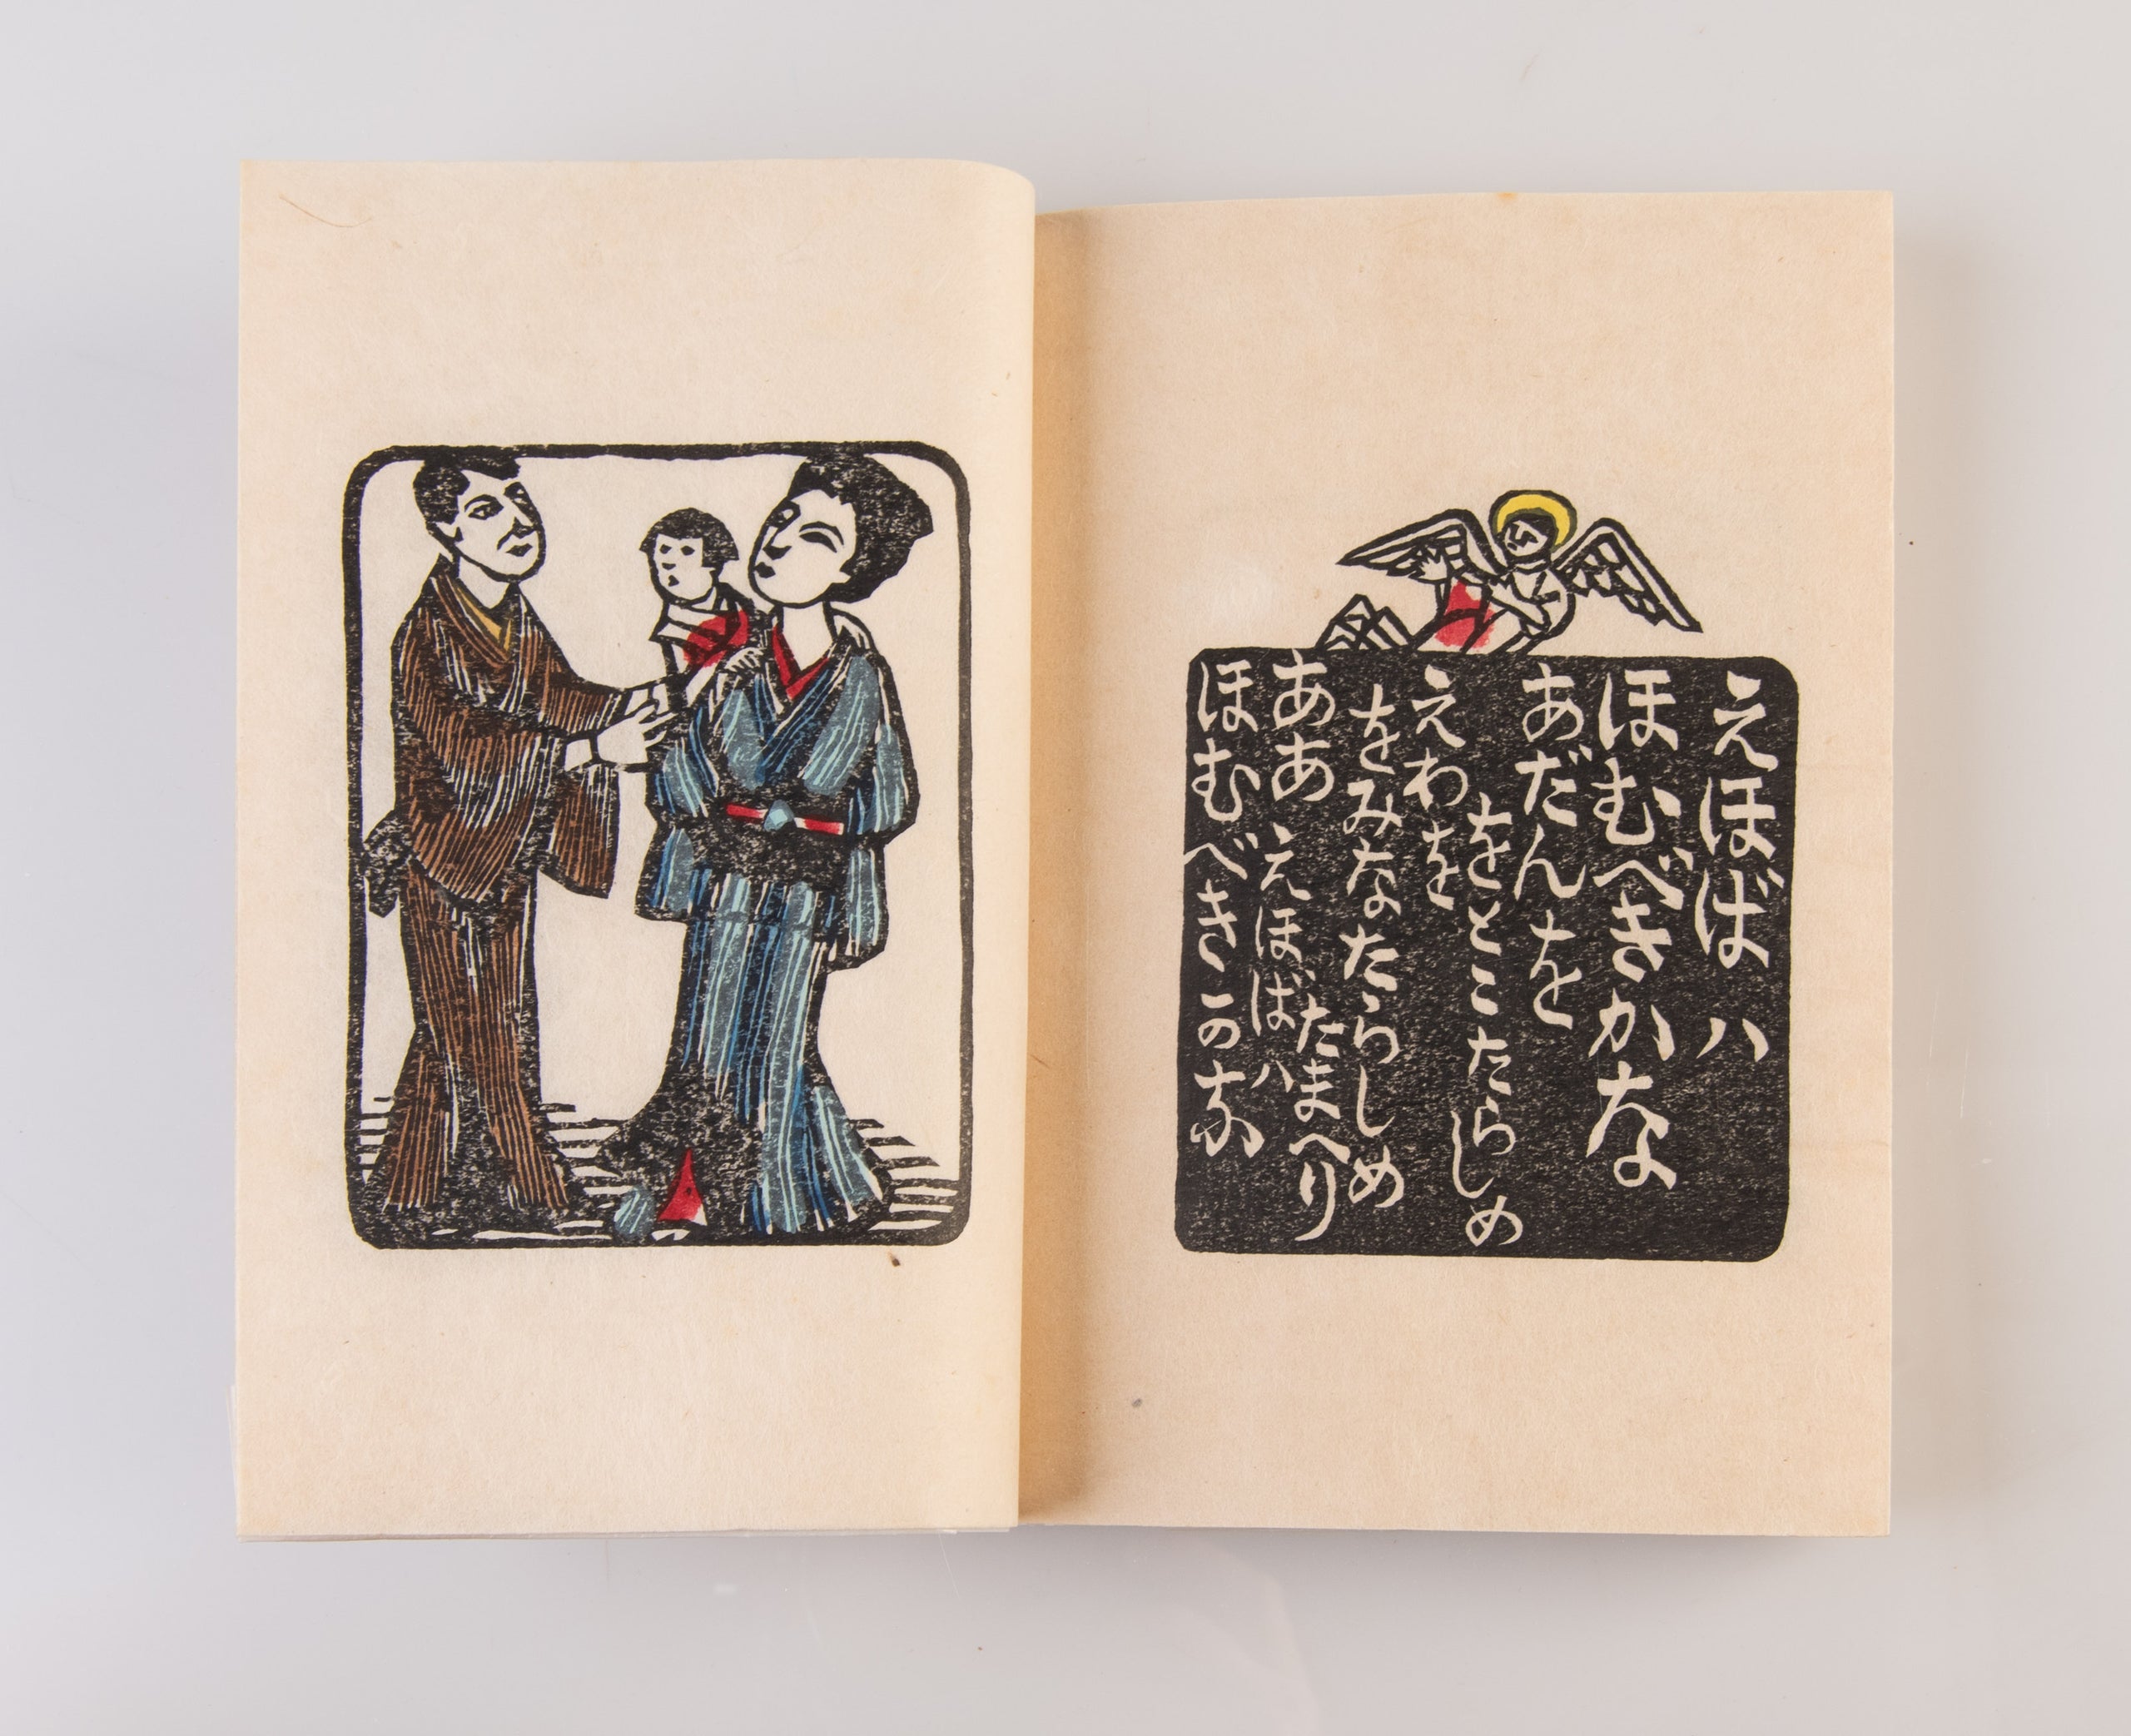 えほばハ
ほむべきかな
あだんを
をとこたらしめ
えわを
をみなたらしめ
たまへり
ああ えほばハ
ほむべきかな